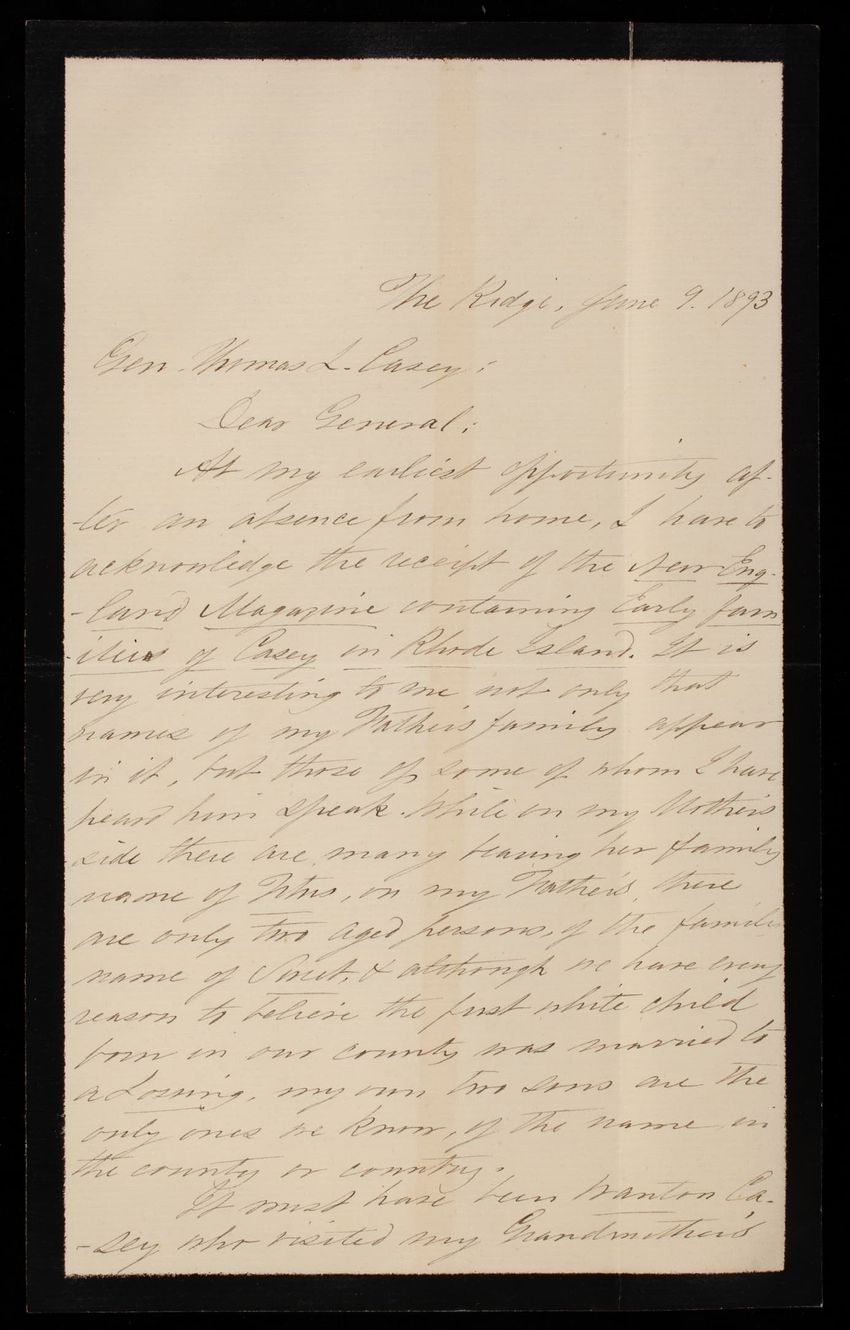 The Ridge, June 9. 1893
Gen. Thomas L. Casey;
Dear General;
At my earliest opportunity af-
-ter an absence from home, I have to
acknowledge the receipt of the New Eng-
-land Magazine containing Early fam
-ilies of Casey in Rhode Island. It is
very interesting to me not only that
names of my Father's family appear
in it, but those of some of whom I have
heard him speak. While on my Mother's
side there are many bearing her family
name of Titus, on my Father's, there
are only two aged persons, of the family
name of Sweet, & although we have every
reason to believe the first white child
born in our county was married to
a Lossing, my own two sons are the
only ones we know, of the name in
the county or country.
It must have been Wanton Ca-
-sey who visited my Grandmother's